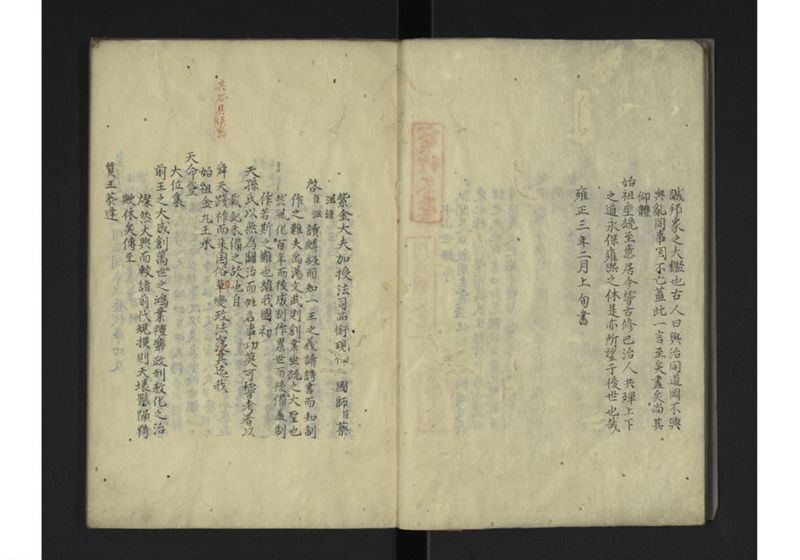 誠邦家之大鑑也古人曰與治同道罔不興
與亂同事罔不亡蓋此一言至矣盡矣尚其
仰體
始祖垂統至意居今嘗古修己治人共殫上下
之道永保雍熙之休是亦所望于後世也哉
雍正三年二月上旬書
紫金大夫加授法司品銜現 國師臣蔡
溫謹
啓臣溫讀麟經而知一王之義誦詩書而知制
作之難夫禹湯文武則創業垂統之大聖也
然風化百年而後成制作累世而後備蓋制
作若斯之難也雖我國初
天孫氏以無為闢治而姓名事功莫可稽考者以
載記未備之故也自
舜天踐祚而来国俗草變政法寔其迄我
始祖金丸王承
天命登
大位集
前王之大成創萬世之鴻業禮樂政刑教化之治
燦然大興而較諸前代規摸則天壤懸隔猗
歟休矣傳至
質王恭逢